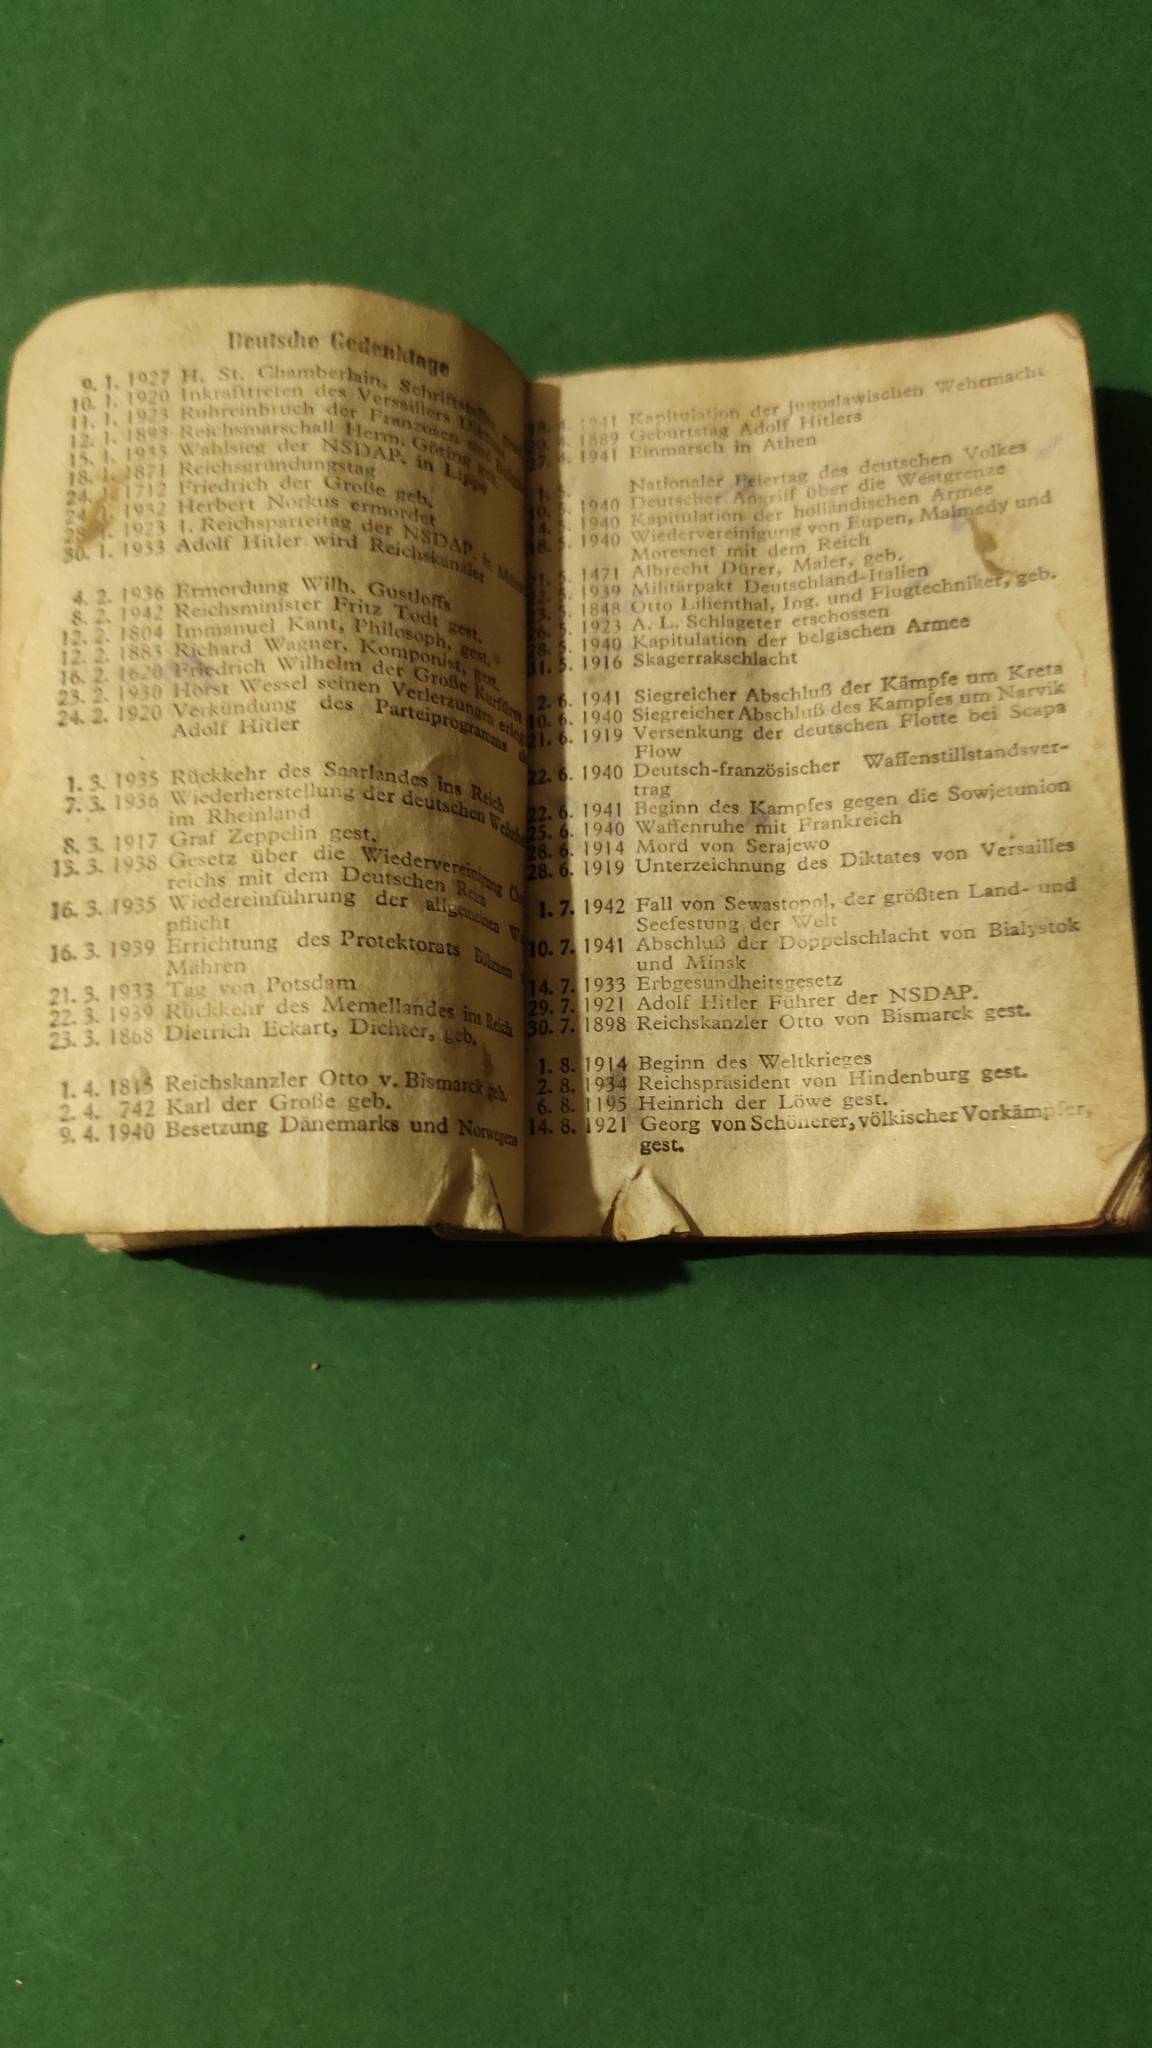 Deutsche Gedenktage
9. 1. 1927 H. St. Chamberlain, Schriftsteller,
10. 1. 1920 Inkrafttreten des Versailler
11. 1. 1923 Ruhreinbruch der Franzosen und
12. 1. 1893 Reichsmarschall Herm. Göring geb.
15. 1. 1933 Wahlsieg der NSDAP. in Lippe
18. 1. 1871 Reichsgründungstag
24. 1. 1712 Friedrich der Große geb.
1. 1932 Herbert Norkus ermordet
1. 1923 1. Reichsparteitag der NSDAP. in
30. 1. 1933 Adolf Hitler wird Reichskanzler
4. 2. 1936 Ermordung Wilh. Gustloffs
8. 2. 1942 Reichsminister Fritz Todt gest.
12. 2. 1804 Immanuel Kant, Philosoph, gest.
12. 2. 1883 Richard Wagner, Komponist, gest.
16. 2. 1620 Friedrich Wilhelm der Große Kurfürst
23. 2. 1930 Horst Wessel seinen Verletzungen erlegen
24. 2. 1920 Verkündung des Parteiprogramms
Adolf Hitler
1. 3. 1935 Rückkehr des Saarlandes ins Reich
7. 3. 1936 Wiederherstellung der deutschen
im Rheinland
8. 3. 1917 Graf Zeppelin gest.
13. 3. 1938 Gesetz über die Wiedervereinigung
reichs mit dem Deutschen Reich
16. 3. 1935 Wiedereinführung der allgemeinen
pflicht
16. 3. 1939 Errichtung des Protektorats Böhmen
Mähren
21. 3. 1933 Tag von Potsdam
22. 3. 1939 Rückkehr des Memellandes ins Reich
23. 3. 1868 Dietrich Eckart, Dichter, geb.
1. 4. 1815 Reichskanzler Otto v. Bismarck geb.
2. 4. 742 Karl der Große geb.
9. 4. 1940 Besetzung Dänemarks und Norwegens
4. 1941 Kapitulation der jugoslawischen Wehrmacht
20. 4. 1889 Geburtstag Adolf Hitlers
27. 4. 1941 Einmarsch in Athen
1. 5. Nationaler Feiertag des deutschen Volkes
10. 5. 1940 Deutscher Angriff über die Westgrenze
14. 5. 1940 Kapitulation der holländischen Armee
18. 5. 1940 Wiedervereinigung von Eupen, Malmedy und
Moresnet mit dem Reich
21. 5. 1471 Albrecht Dürer, Maler, geb.
22. 5. 1939 Militärpakt Deutschland-Italien
23. 5. 1848 Otto Lilienthal, Ing. und Flugtechniker, geb.
26. 5. 1923 A. L. Schlageter erschossen
28. 5. 1940 Kapitulation der belgischen Armee
31. 5. 1916 Skagerrakschlacht
2. 6. 1941 Siegreicher Abschluß der Kämpfe um Kreta
10. 6. 1940 Siegreicher Abschluß des Kampfes um Narvik
21. 6. 1919 Versenkung der deutschen Flotte bei Scapa
Flow
22. 6. 1940 Deutsch-französischer Waffenstillstandsver-
trag
22. 6. 1941 Beginn des Kampfes gegen die Sowjetunion
25. 6. 1940 Waffenruhe mit Frankreich
28. 6. 1914 Mord von Serajewo
28. 6. 1919 Unterzeichnung des Diktates von Versailles
1. 7. 1942 Fall von Sewastopol, der größten Land- und
Seefestung der Welt
10. 7. 1941 Abschluß der Doppelschlacht von Bialystok
und Minsk
14. 7. 1933 Erbgesundheitsgesetz
29. 7. 1921 Adolf Hitler Führer der NSDAP.
30. 7. 1898 Reichskanzler Otto von Bismarck gest.
1. 8. 1914 Beginn des Weltkrieges
2. 8. 1934 Reichspräsident von Hindenburg gest.
6. 8. 1195 Heinrich der Löwe gest.
14. 8. 1921 Georg von Schönerer, völkischer Vorkämpfer,
gest.